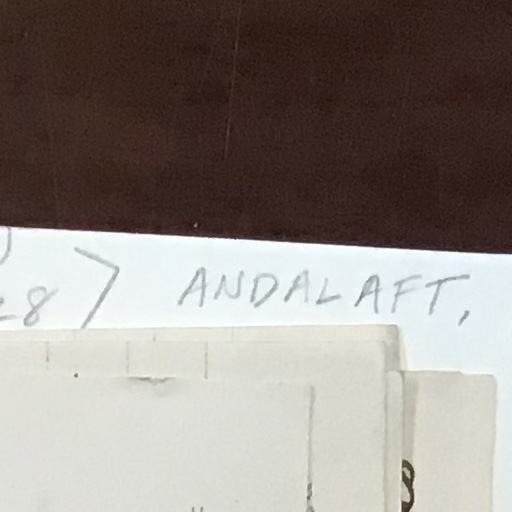 87 ANDALAFT,